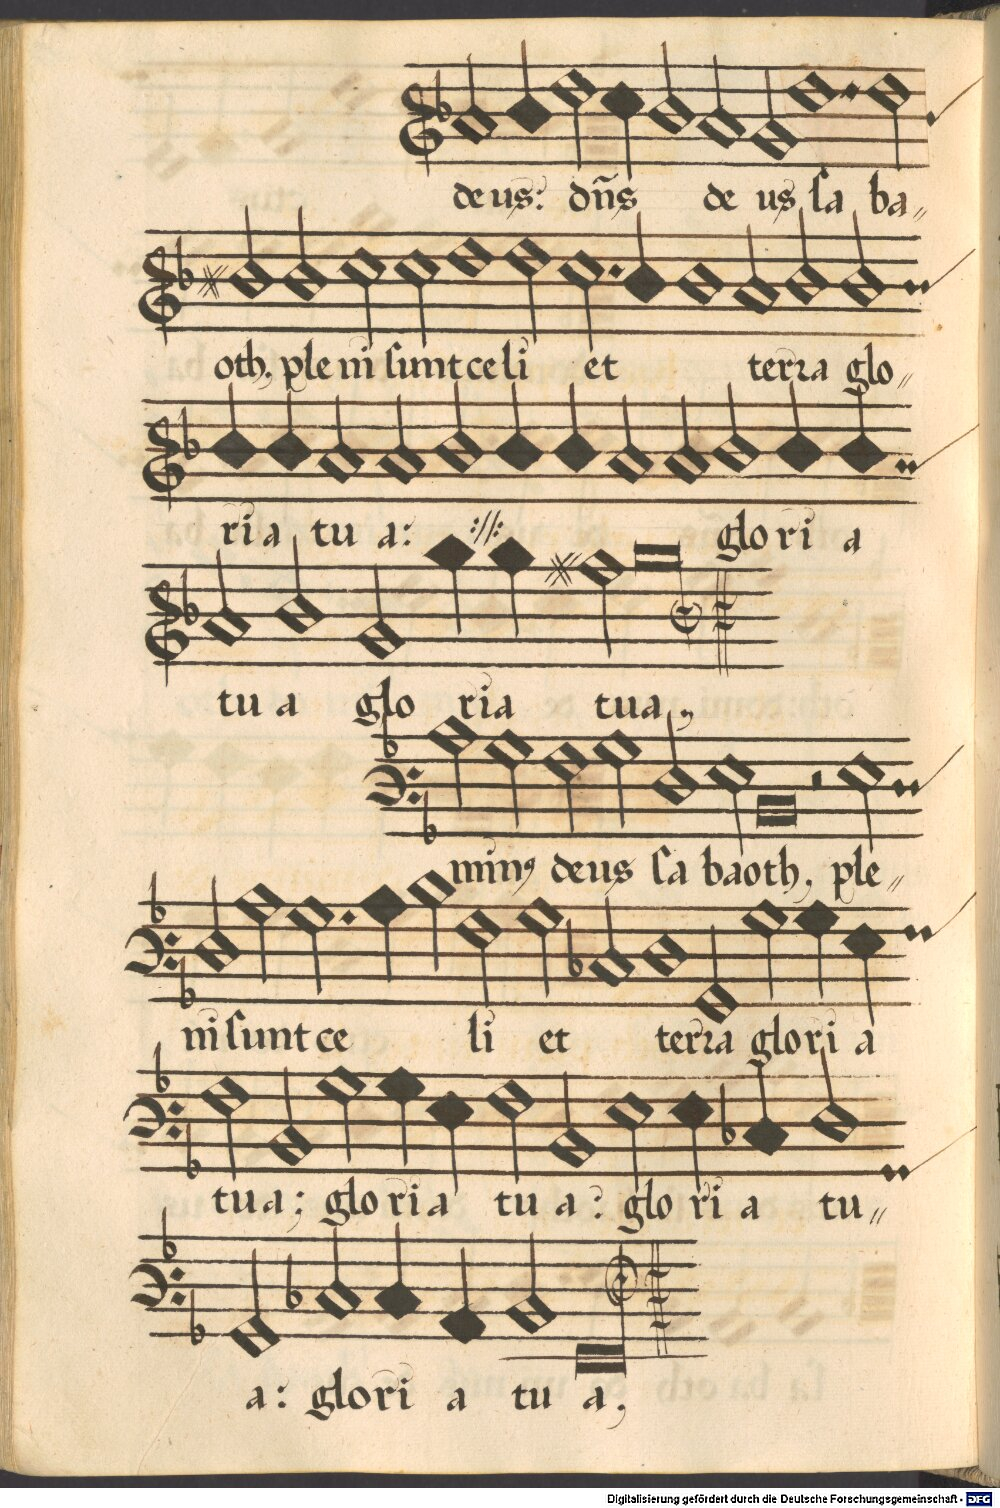 deus: dn̄s de us ſa ba〃
oth, ple ni ſunt celi et terra glo〃
ria tu a: :||: glo ri a
tu a glo ria tua,
minꝰ deus ſa baoth, ple〃
ni ſunt ce li et terra glori a
tua: gloria tu a: glo ri a tu〃
a: glori a tu a,
Digitalisierung gefördert durch die Deutsche Forschungsgemeinschaft - DFG